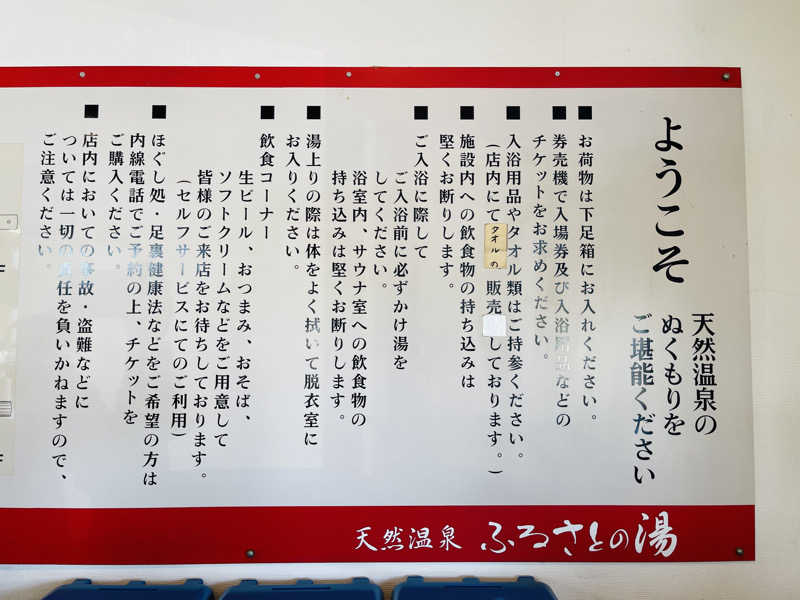 ようこそ
天然温泉の
ぬくもりを
ご堪能ください
■お荷物は下足箱にお入れください。
■券売機で入場券及び入浴用品などの
チケットをお求めください。
■入浴用品やタオル類はご持参ください。
(店内にてタオルの販売しております。)
■施設内への飲食物の持ち込みは
堅くお断りします。
■ご入浴に際して
ご入浴前に必ずかけ湯を
してください。
浴室内、サウナ室への飲食物の
持ち込みは堅くお断りします。
■湯上りの際は体をよく拭いて脱衣室に
お入りください。
■飲食コーナー
生ビール、おつまみ、おそば、
ソフトクリームなどをご用意して
皆様のご来店をお待ちしております。
(セルフサービスにてのご利用)
■ほぐし処・足裏健康法などをご希望の方は
内線電話でご予約の上、チケットを
ご購入ください。
■店内においての事故・盗難などに
ついては一切の責任を負いかねますので、
ご注意ください。
天然温泉 ふるさとの湯